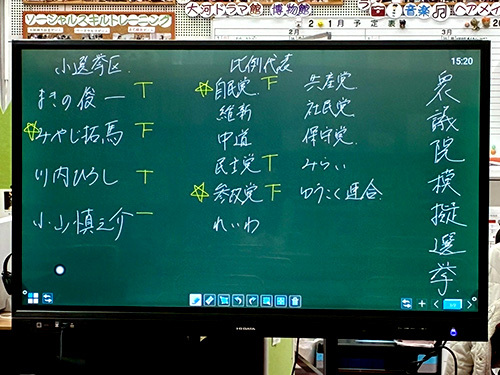 ソーシャルスキルトレーニング
大河ドラマ館 博物館
音楽
ヘアメイ
1月予定表
15:20
衆議院模擬選挙
小選挙区
まきの俊一 T
☆みやじ拓馬 下
川内ひろし T
小山慎之介 一
比例代表
☆自民党 下
維新
中道
民主党 T
☆参政党 下
れいわ
共産党
社民党
保守党
みらい
ゆうこく連合
I-O DATA